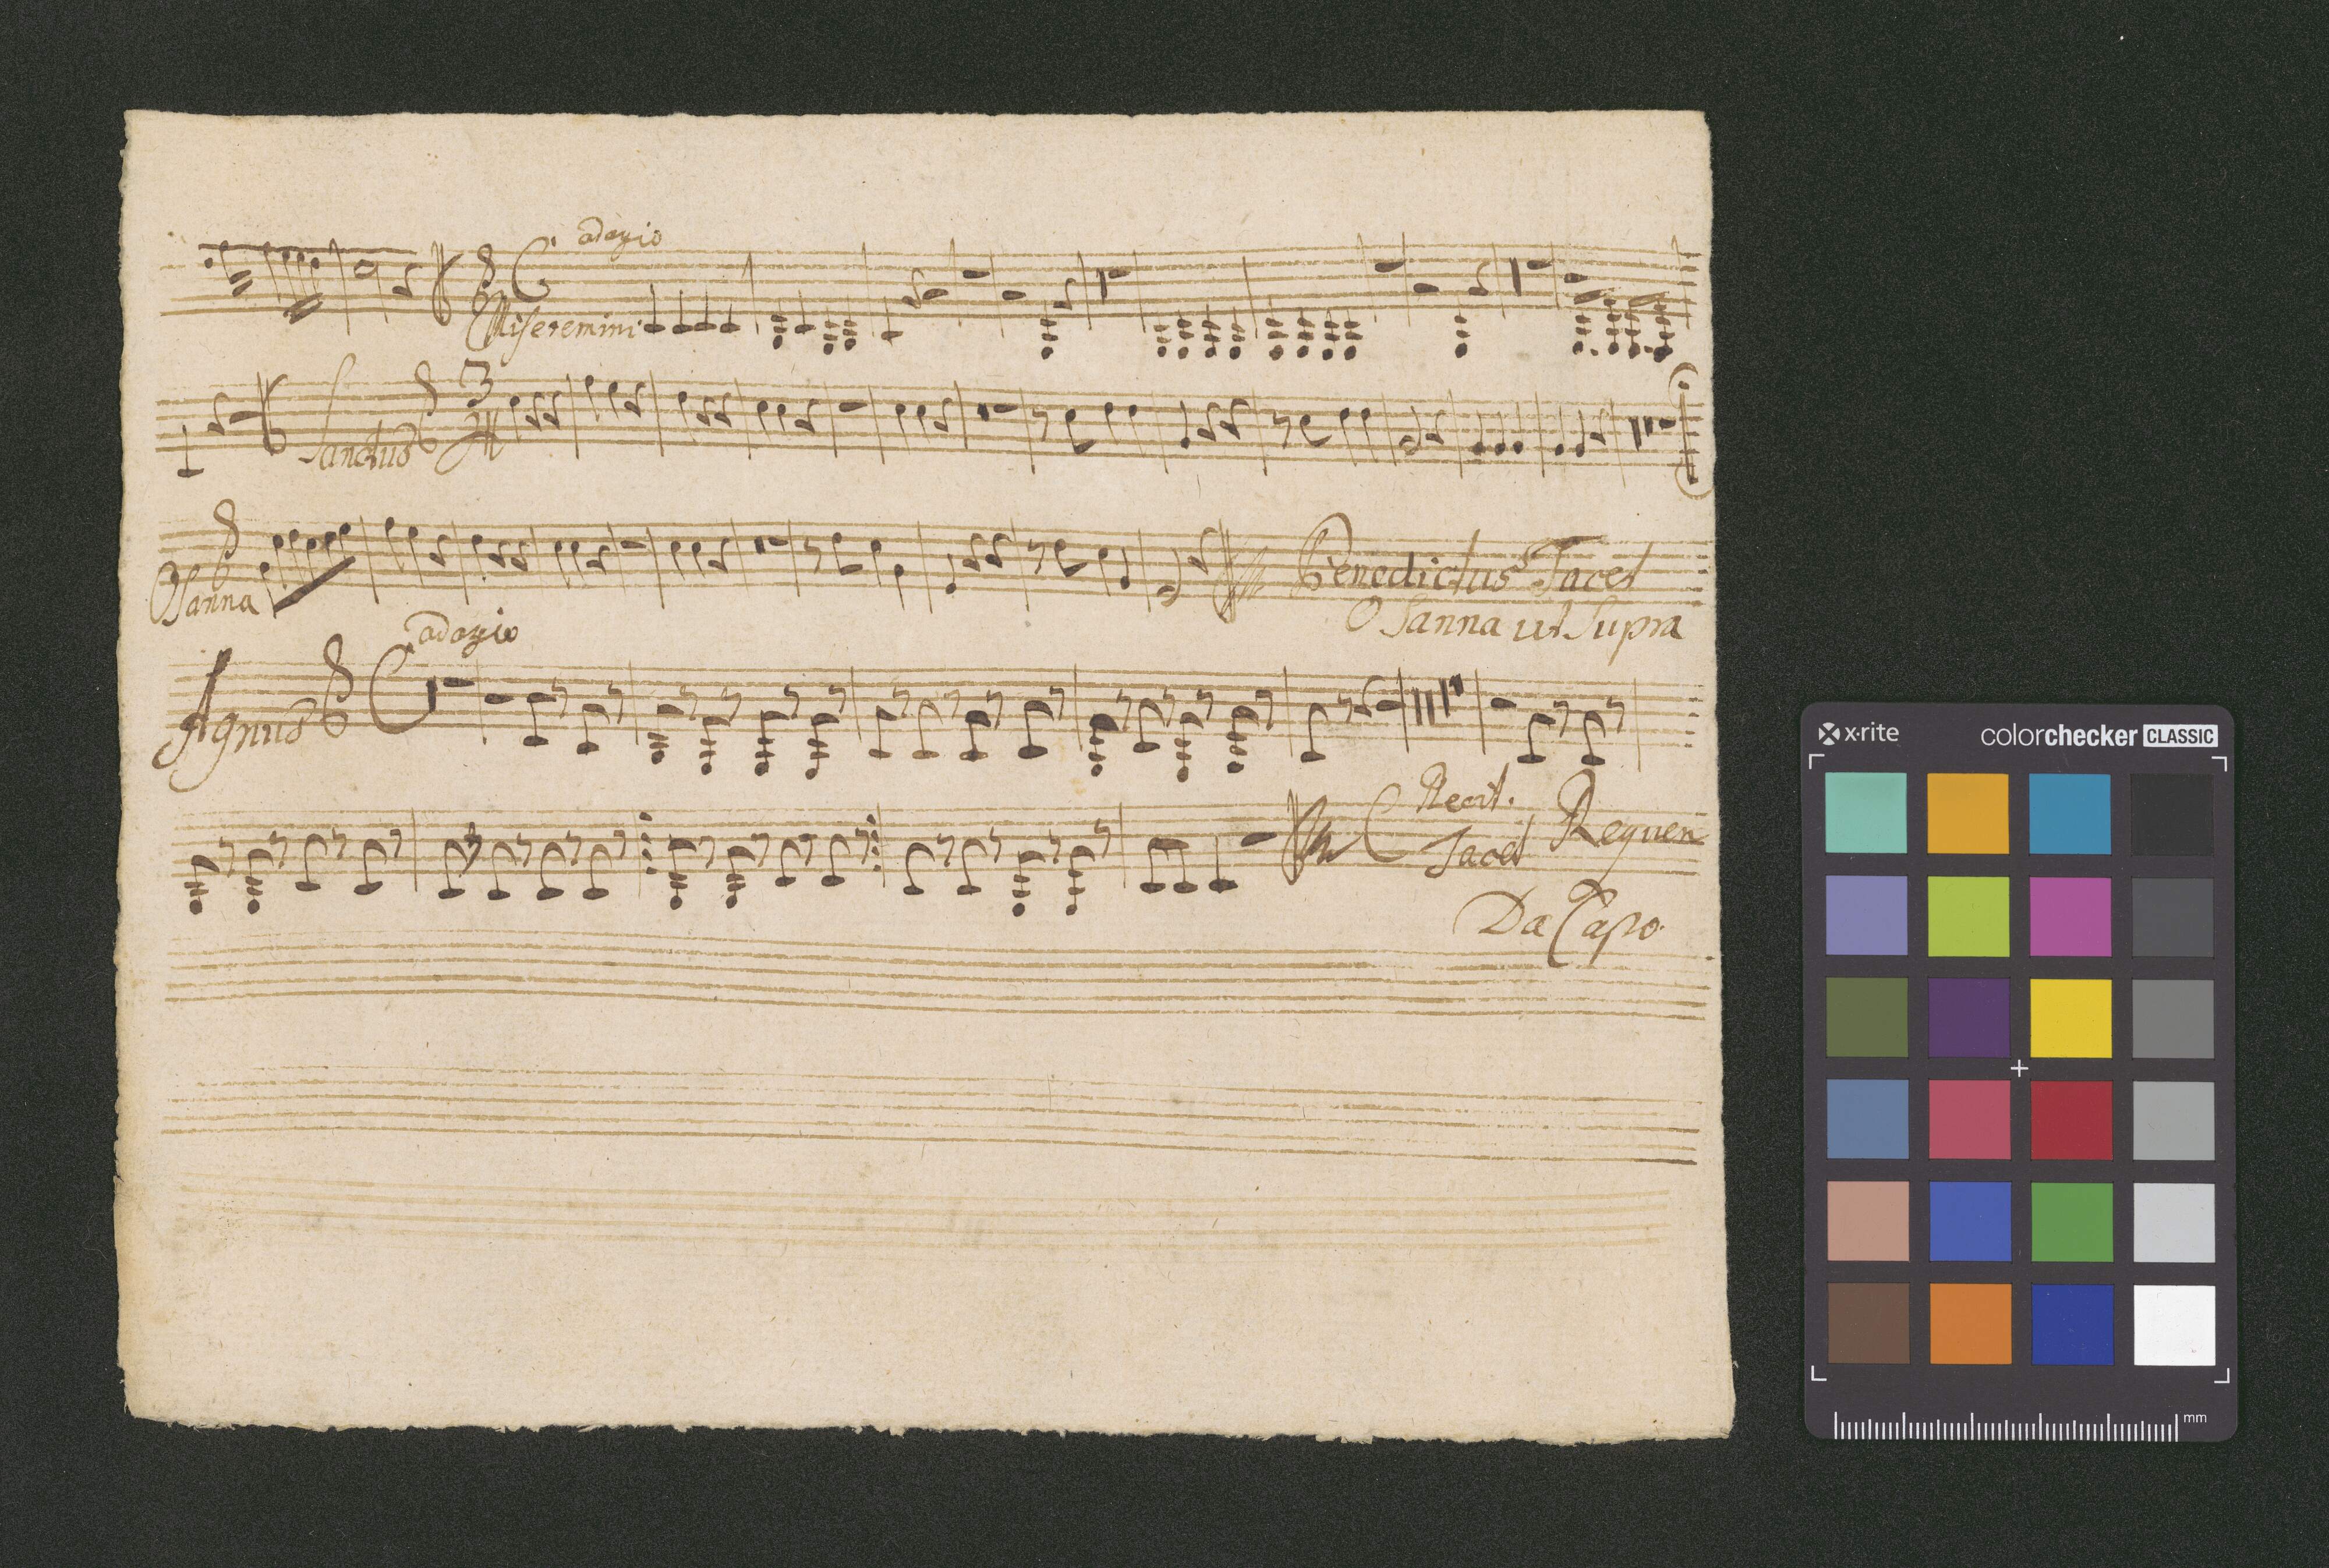 adagio
Miseremini
Sanctus 3
Osanna
Benedictus Tacet
Osanna ut Supra
adagio
Agnus
Recit.
Tacet Requem
Da Capo
x-rite colorchecker CLASSIC
mm